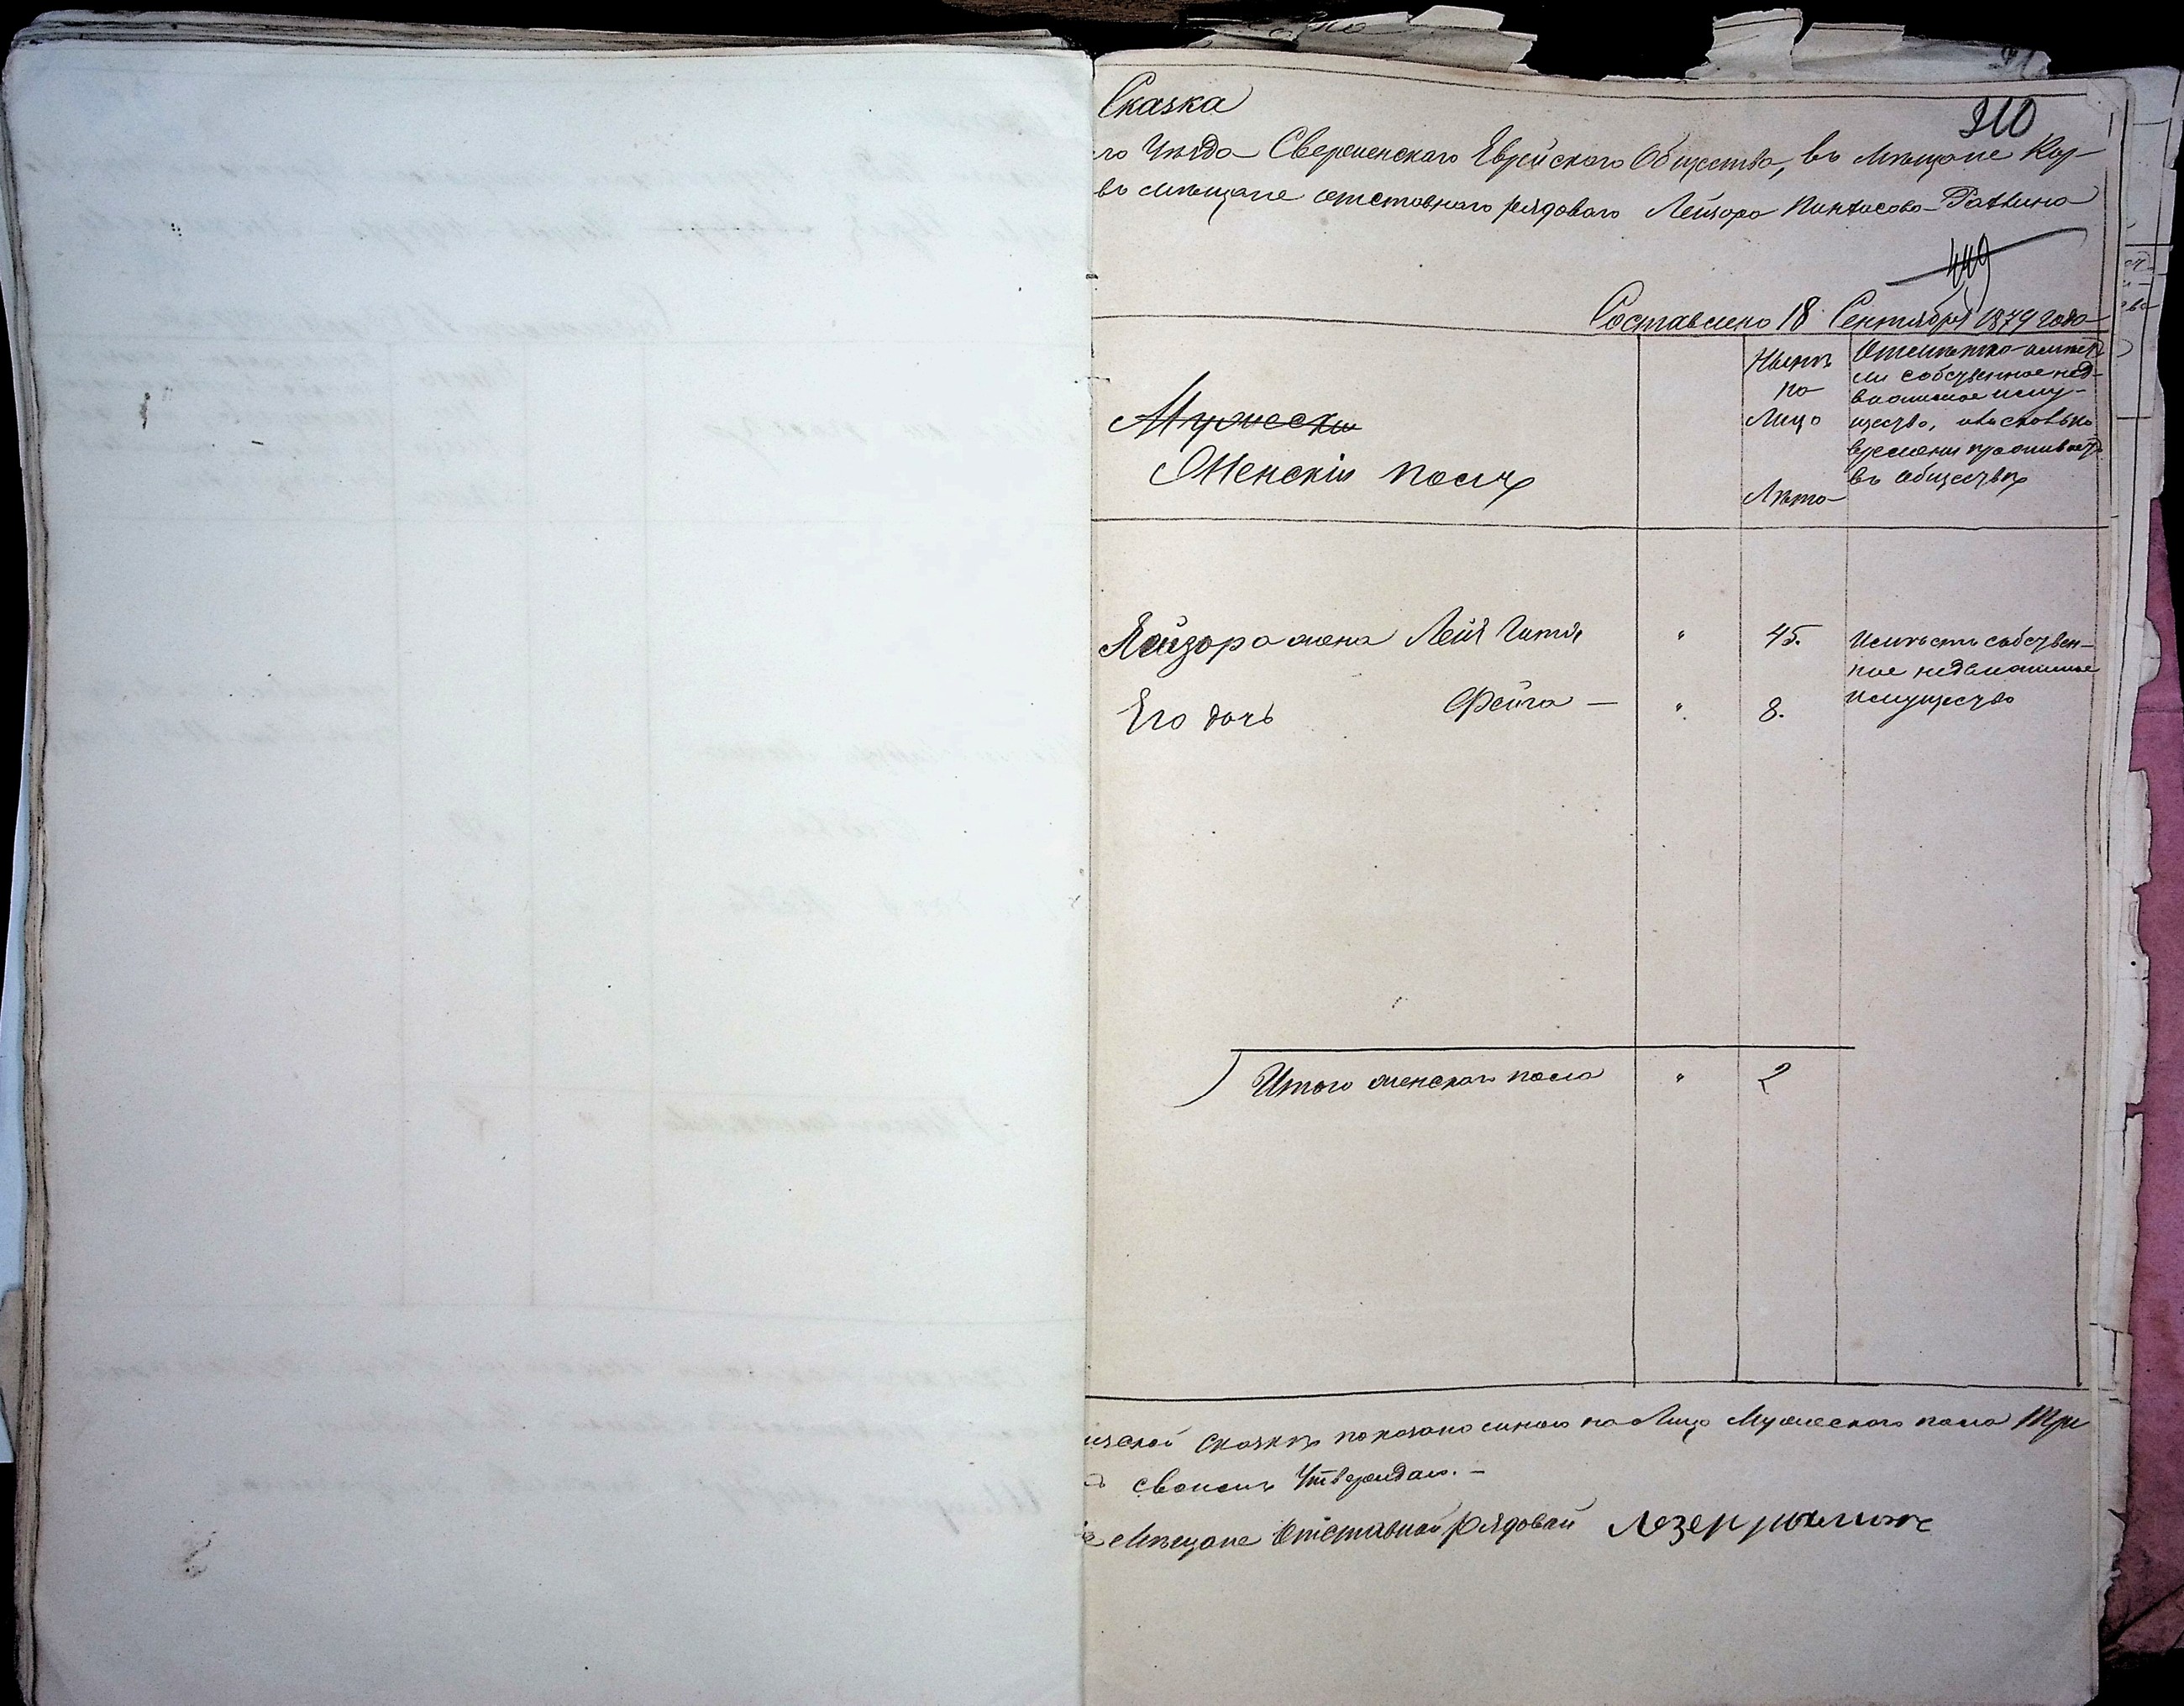 Сказка
310
го Уѣзда Сверженскаго Еврейскаго Общества, въ мѣщане кор-
въ мѣщане отставнаго рядоваго Лейзора Пинхасова Рахлина
449
Составлена 18 Сентября 1879 года
Мужески
Женскій полъ
Нынѣ
на
Лицо
Лѣта
Отмѣтка имѣетъ
ли собственное нед-
вижимое иму-
щество, и сколько
времени проживаетъ
въ обществѣ
Лейзора жена Лея Гитля " 45. Имѣетъ собствен-
ное недвижимое
Его дочь Фейга — " 8. имущество
Итого женскаго пола " 2
сказкѣ показано на Лицо Мужескаго пола три
своимъ Утверждаю. —
Мѣщане Отставной Рядовой Лезер